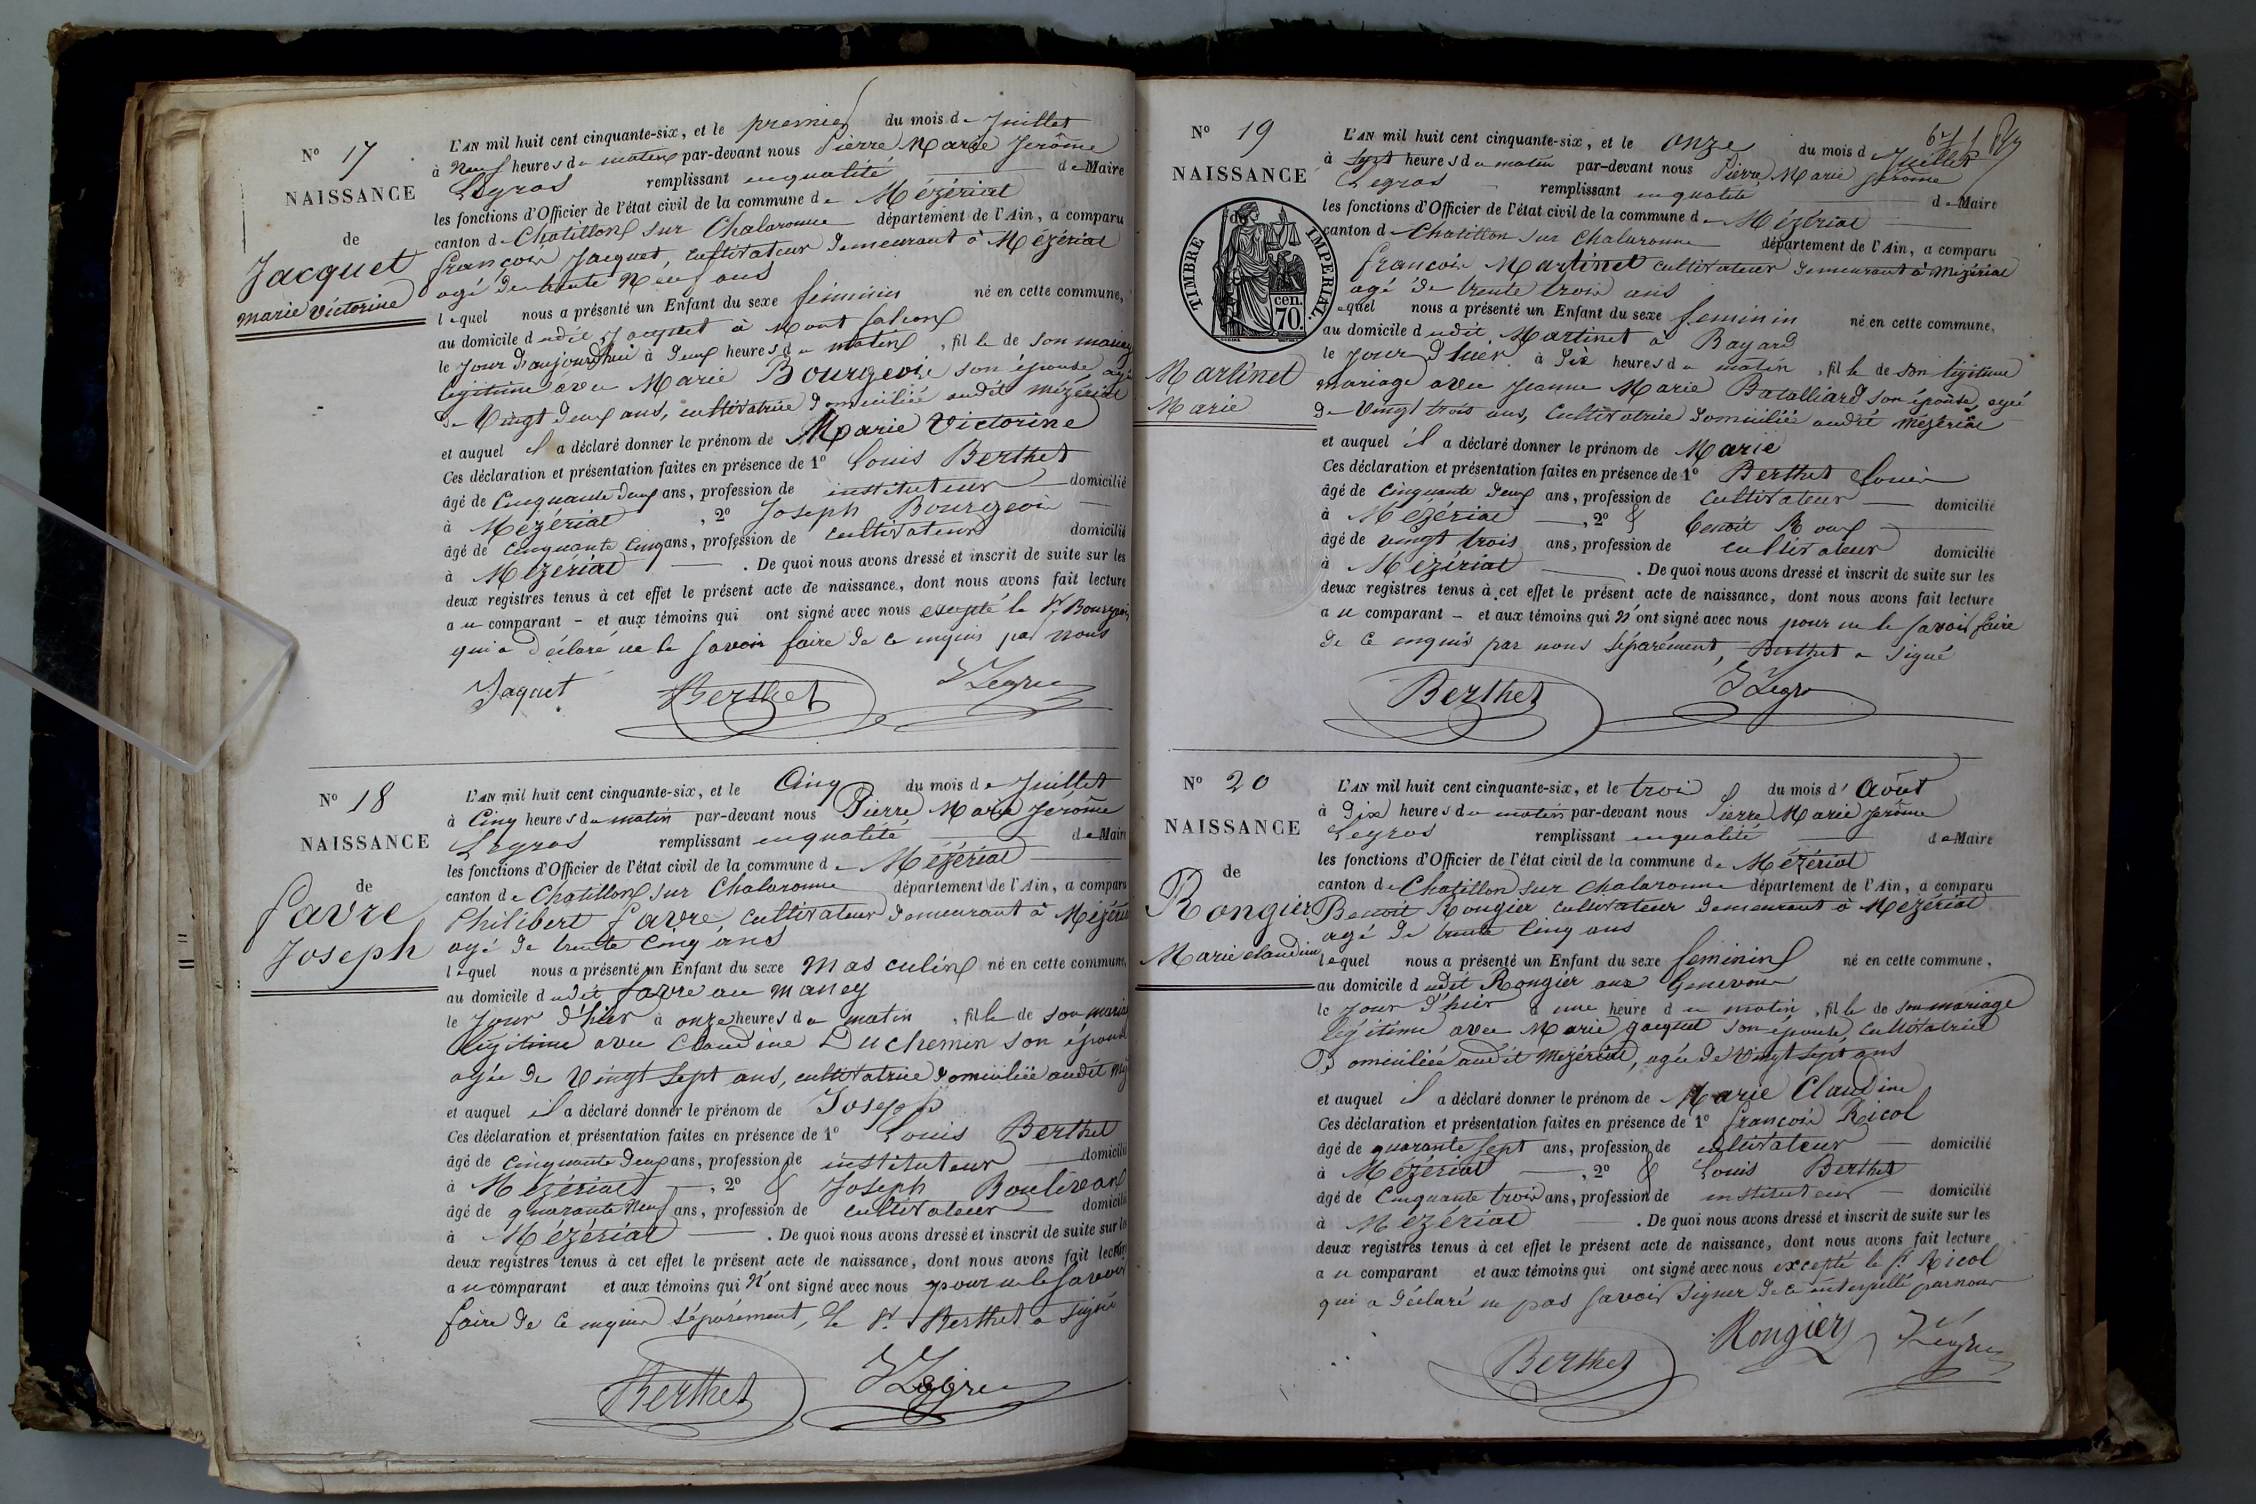 N° 17
NAISSANCE
de
Jacquet
marie victorine
L'AN mil huit cent cinquante-six, et le premier du mois de Juillet
à Neuf heures du matin par-devant nous Pierre Marie Jerôme
Legros remplissant en qualité de Maire
les fonctions d'Officier de l'état civil de la commune de Mézériat
canton de Chatillon sur Chalaronne département de l'Ain, a comparu
françois Jacquet, cultivateur demeurant à Mézériat
agé de trente Neuf ans
lequel nous a présenté un Enfant du sexe féminin né en cette commune,
au domicile dudit Jacquet à Mont falcon
le Jour d'aujourdhui à deux heures du matin, fille de son mariag
légitime avec Marie Bourgeois son épouse agé
de Vingt deux ans, cultivatrice domiciliée audit Mézériat
et auquel il a déclaré donner le prénom de Marie Victorine
Ces déclaration et présentation faites en présence de 1° Louis Berthet
âgé de Cinquante deux ans, profession de instituteur domicilié
à Mézériat, 2° Joseph Bourgeois
âgé de cinquante cinq ans, profession de cultivateur domicilié
à Mézériat. De quoi nous avons dressé et inscrit de suite sur les
deux registres tenus à cet effet le présent acte de naissance, dont nous avons fait lecture
au comparant - et aux témoins qui ont signé avec nous excepté le Sr Bourgeois
qui a déclaré ne le savoir faire de ce enquis par nous
Jaquet Berthet JLegros
N° 18
NAISSANCE
de
favre
Joseph
L'AN mil huit cent cinquante-six, et le Cinq du mois de Juillet
à Cinq heures du matin par-devant nous Pierre Marie Jerôme
Legros remplissant en qualité de Maire
les fonctions d'Officier de l'état civil de la commune de Mézériat
canton de Chatillon sur Chalaronne département de l'Ain, a comparu
Philibert favre, cultivateur demeurant à Mézériat
agé de trente Cinq ans
lequel nous a présenté un Enfant du sexe Masculin né en cette commune,
au domicile dudit favre au Maney
le Jour d'hier à onze heures du matin, fille de son mariag
légitime avec Claudine Duchemin son épouse
agée de Vingt Sept ans, cultivatrice domiciliée audit Méz
et auquel il a déclaré donner le prénom de Joseph
Ces déclaration et présentation faites en présence de 1° Louis Berthet
âgé de Cinquante deux ans, profession de instituteur domicilié
à Mézériat, 2° & Joseph
âgé de quarante Neuf ans, profession de cultivateur domicilié
à Mézériat. De quoi nous avons dressé et inscrit de suite sur les
deux registres tenus à cet effet le présent acte de naissance, dont nous avons fait lecture
au comparant et aux témoins qui n'ont signé avec nous pour ne le savoir
faire de ce enquis séparément, le Sr Berthet a signé
Berthet JLegros
N° 19
NAISSANCE
TIMBRE IMPERIAL.
cen.
70.
Martinet
Marie
L'AN mil huit cent cinquante-six, et le onze du mois de Juillet
à sept heures du matin par-devant nous Pierre Marie Jérôme
Legros remplissant en qualité de Maire
les fonctions d'Officier de l'état civil de la commune de Mézériat
canton de Chatillon sur Chalaronne département de l'Ain, a comparu
françois Martinet cultivateur demeurant à Mézériat
agé de trente trois ans
lequel nous a présenté un Enfant du sexe feminin né en cette commune,
au domicile dudit Martinet à Bayard
le Jour d'hier à dix heures du matin, fille de son légitime
mariage avec Jeanne Marie Batalliard son épouse, agée
de Vingt trois ans, Cultivatrice domiciliée audit Mézériat
et auquel il a déclaré donner le prénom de Marie
Ces déclaration et présentation faites en présence de 1° Berthet Louis
âgé de cinquante deux ans, profession de cultivateur domicilié
à Mézériat, 2° & benoit Roux
âgé de vingt trois ans, profession de cultivateur domicilié
à Mézériat. De quoi nous avons dressé et inscrit de suite sur les
deux registres tenus à cet effet le présent acte de naissance, dont nous avons fait lecture
au comparant - et aux témoins qui n'ont signé avec nous pour ne le savoir faire
de ce enquis par nous séparément, Berthet a signé
Berthet JLegros
N° 20
NAISSANCE
de
Rongier
Marie claudine
L'AN mil huit cent cinquante-six, et le trois du mois d'Août
à Dix heures du matin par-devant nous Pierre Marie Jerôme
Legros remplissant en qualité de Maire
les fonctions d'Officier de l'état civil de la commune de Mézériat
canton de Chatillon sur Chalaronne département de l'Ain, a comparu
Benoit Rongier cultivateur demeurant à Mézériat
agé de trente Cinq ans
lequel nous a présenté un Enfant du sexe feminin né en cette commune,
au domicile dudit Rongier aux Genevois
le Jour d'hier à une heure du matin, fille de son mariage
légitime avec Marie Jacquet son épouse, cultivatrice
Domiciliée audit Mézériat, agée de Vingt sept ans
et auquel il a déclaré donner le prénom de Marie Claudine
Ces déclaration et présentation faites en présence de 1° françois Ricol
âgé de quarante sept ans, profession de cultivateur domicilié
à Mézériat, 2° & Louis Berthet
âgé de Cinquante trois ans, profession de instituteur domicilié
à Mézériat. De quoi nous avons dressé et inscrit de suite sur les
deux registres tenus à cet effet le présent acte de naissance, dont nous avons fait lecture
au comparant et aux témoins qui ont signé avec nous excepté le Sr Ricol
qui a déclaré ne pas savoir signer de ce interpellé par nous
Berthet Rongier JLegros